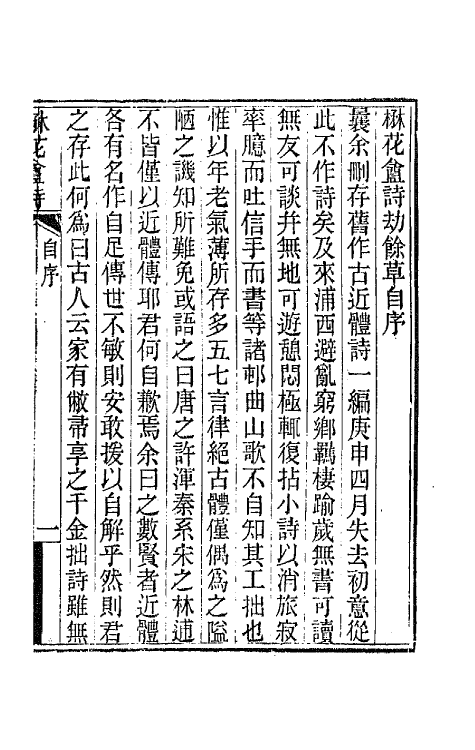 楙花盦詩劫餘草自序
曩余刪存舊作古近體詩一編庚申四月失去初意從
此不作詩矣及來浦西避亂窮鄉羈棲踰歲無書可讀
無友可談幷無地可遊憩悶極輒復拈小詩以消旅寂
率臆而吐信手而書等諸邨曲山歌不自知其工拙也
惟以年老氣薄所存多五七言律絕古體僅偶爲之隘
陋之譏知所難免或語之曰唐之許渾秦系宋之林逋
不皆僅以近體傳耶君何自歉焉余曰之數賢者近體
各有名作自足傳世不敏則安敢援以自解乎然則君
之存此何爲曰古人云家有敝帚享之千金拙詩雖無
楙花盦詩
自序
一